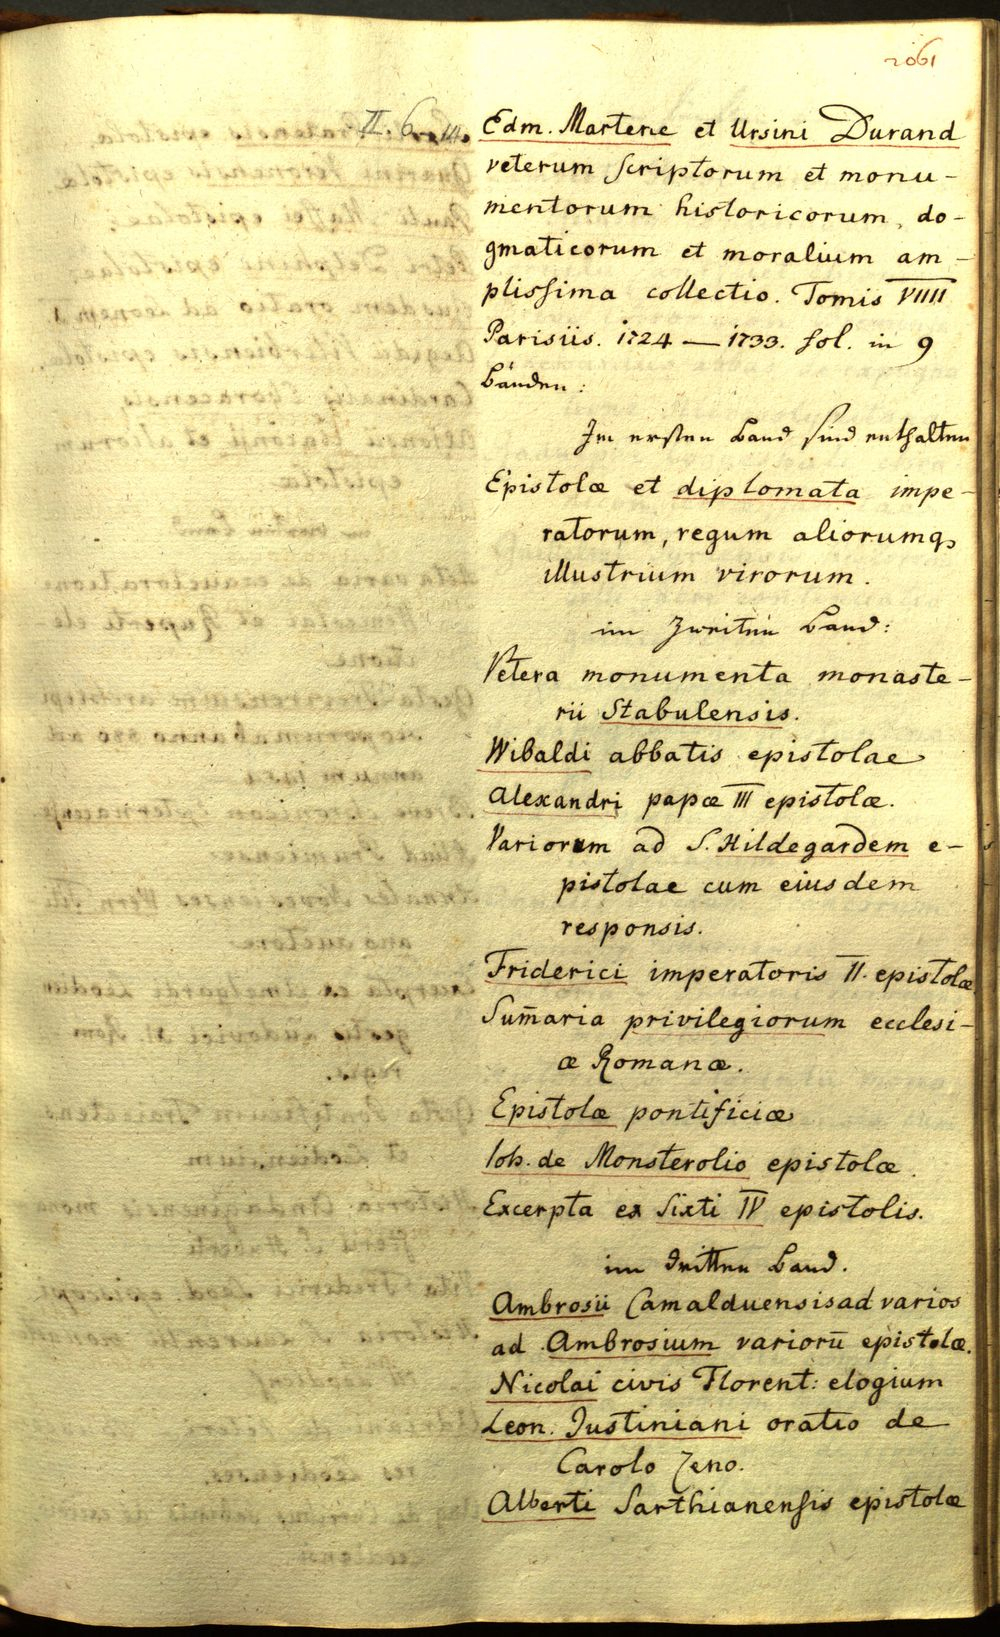 2061
II. 6.
Edm. Martene et Ursini Durand
veterum scriptorum et monu-
mentorum historicorum, do-
gmaticorum et moralium am-
plissima collectio. Tomis VIIII
Parisiis. 1724 — 1733. fol. in 9
Bänden:
Im ersten Band sind enthalten
Epistolæ et diplomata impe-
ratorum, regum aliorumq,
illustrium virorum.
im Zweiten Band:
Vetera monumenta monaste-
rii Stabulensis.
Wibaldi abbatis epistolae
Alexandri papæ III epistolæ.
Variorum ad S. Hildegardem e-
pistolae cum eiusdem
responsis.
Friderici imperatoris II. epistolæ
Sum̄aria privilegiorum ecclesi-
æ Romanæ.
Epistolæ pontificiæ
Ioh. de Monsterolio epistolæ.
Excerpta ex Sixti IV epistolis.
im dritten Band.
Ambrosii Camalduensis ad varios
ad Ambrosium variorū epistolæ.
Nicolai civis Florent: elogium
Leon. Iustiniani oratio de
Carolo Zeno.
Alberti Sarthianensis epistolæ